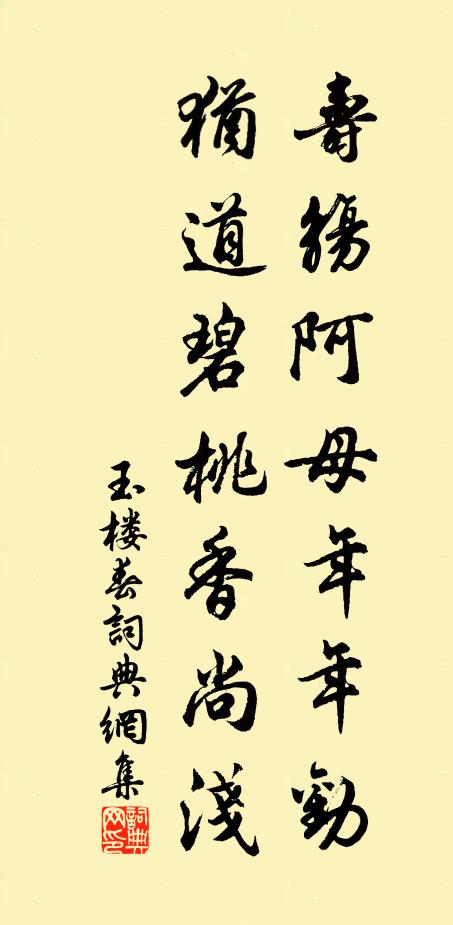 壽觴阿母年年勸
猶道碧桃香尚淺
玉楼春詞典網集
詞典
网印